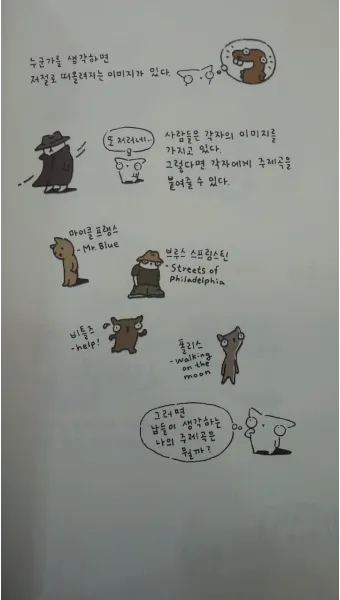 누군가를 생각하면
저절로 떠올려지는 이미지가 있다.
또 저러네..
사람들은 각자의 이미지를
가지고 있다.
그렇다면 각자에게 주제곡을
붙여줄 수 있다.
마이클 프랭스
- Mr. Blue
브루스 스프링스틴
- Streets of
Philadelphia
비틀즈
- help!
폴리스
- walking
on the
moon
그러면
남들이 생각하는
나의 주제곡은
뭘까?